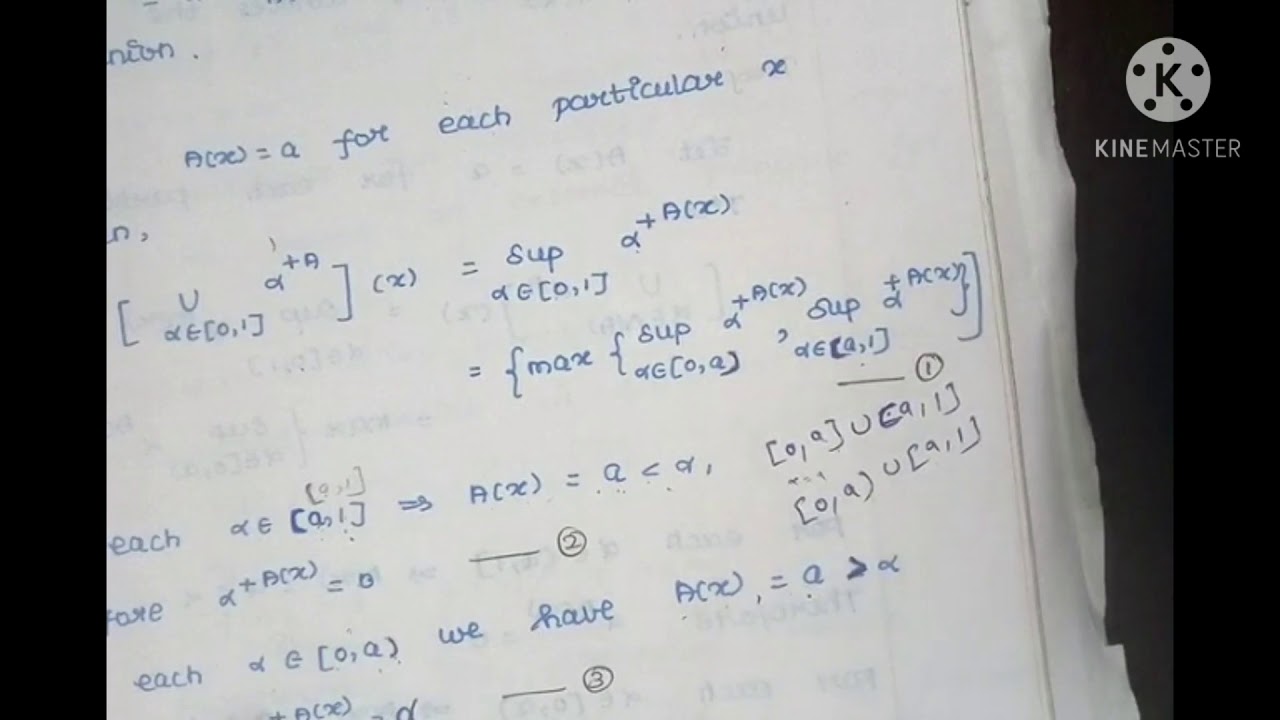 union.
A(x) = a for each particular x
n,
[ ∪ α∈[0,1] α^{+A} ] (x) = sup α∈[0,1] α^{+A(x)}
= { max { sup α∈[0,a) α^{+A(x)} , sup α∈[a,1] α^{+A(x)} } ]
—— ①
[0,a] ∪ [a,1]
[0,a) ∪ [a,1]
[a,1]
each α ∈ [a,1] ⇒ A(x) = a < α,
fore α^{+A(x)} = 0 —— ②
each α ∈ [0,a) we have A(x) = a > α
+A(x) = α —— ③
KINEMASTER